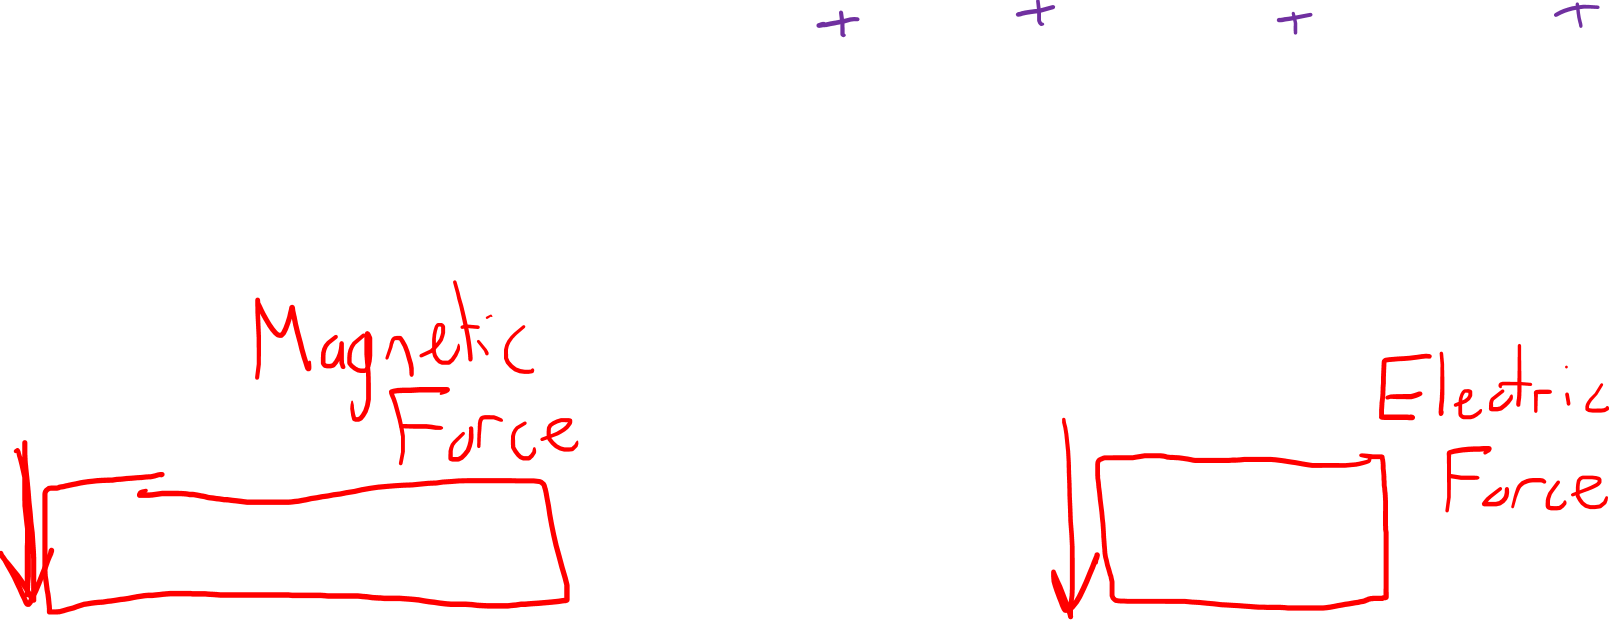 + + + +
Magnetic
Force
Electric
Force